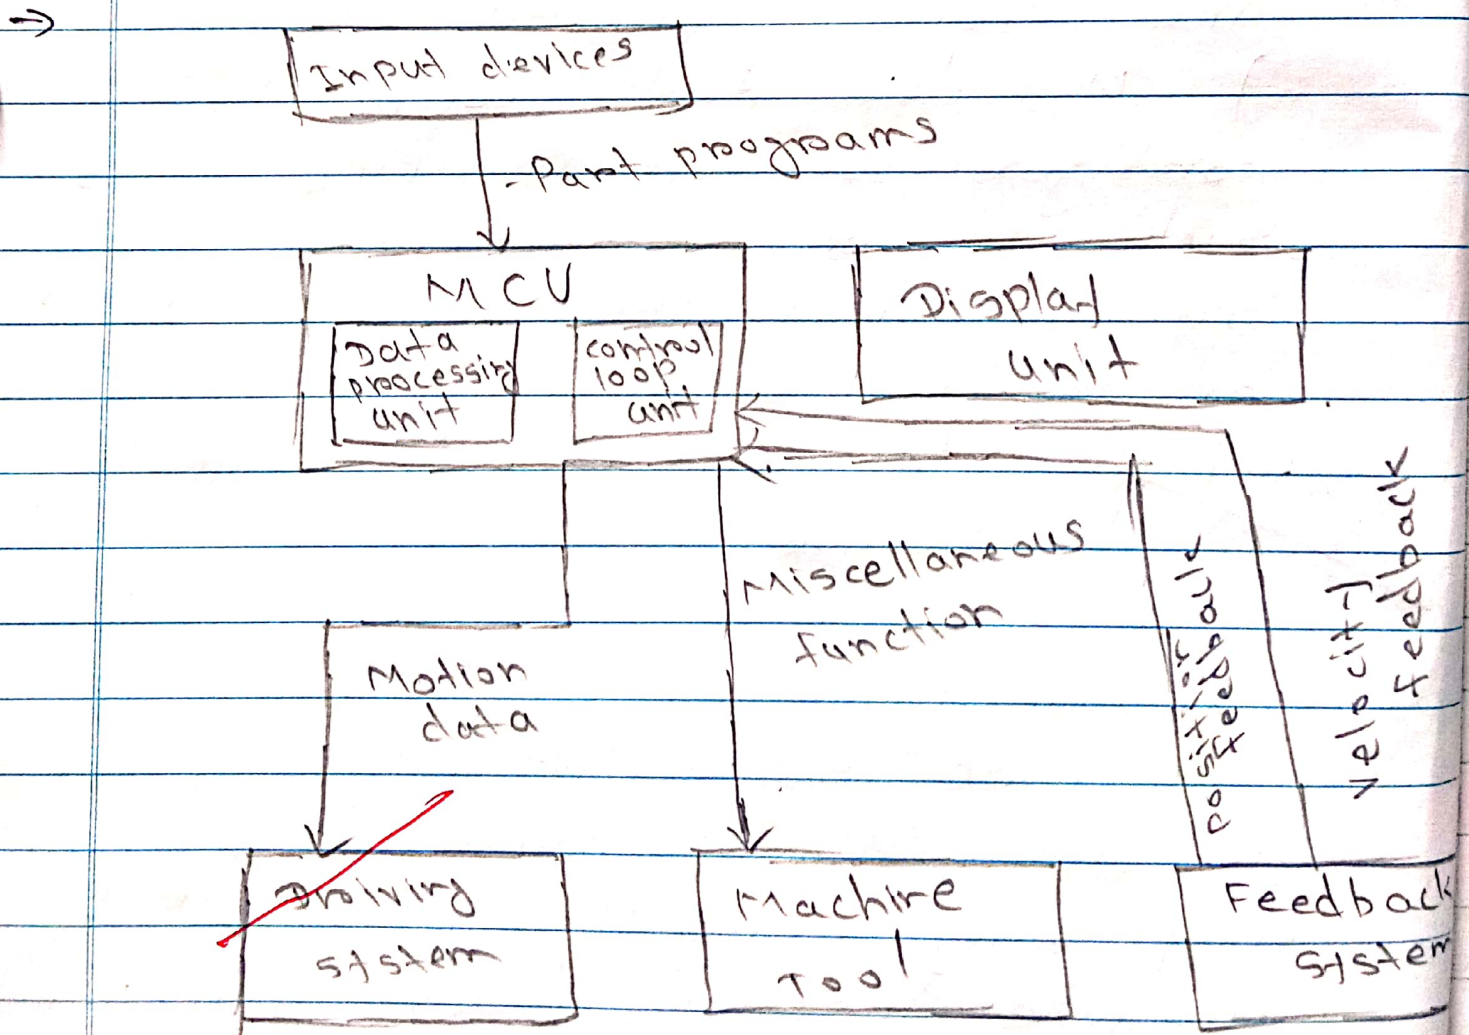 →
Input devices
- Part programs
MCU
Data
processing
unit
control
loop
unit
Display
unit
Miscellaneous
function
Motion
data
position
feedback
velocity
feedback
Driving
system
Machine
Tool
Feedback
system